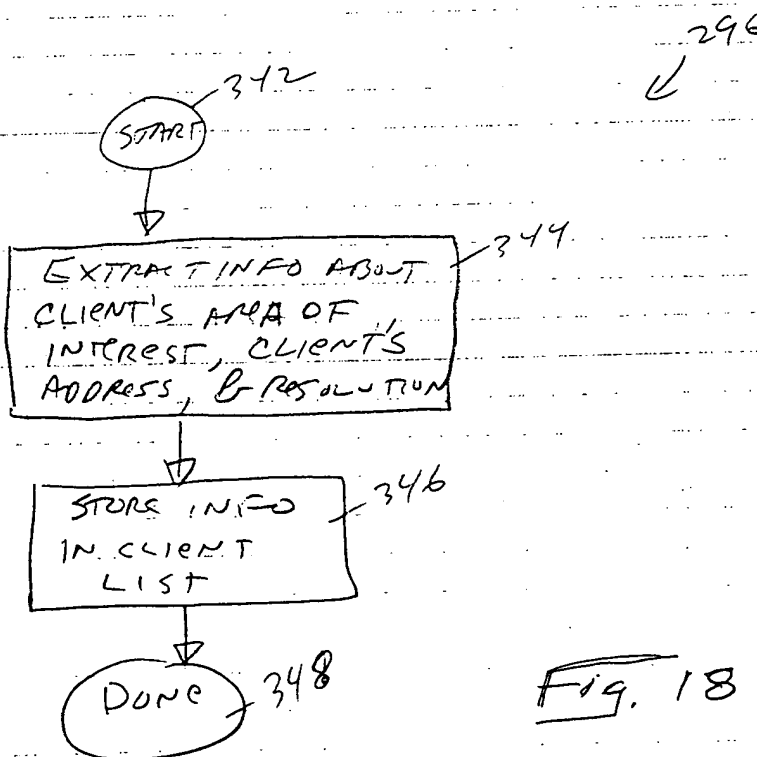 296
342
START
344
EXTRACT INFO ABOUT
CLIENT'S AREA OF
INTEREST, CLIENT'S
ADDRESS, & RESOLUTION
346
STORE INFO
IN CLIENT
LIST
DONE 348
Fig. 18